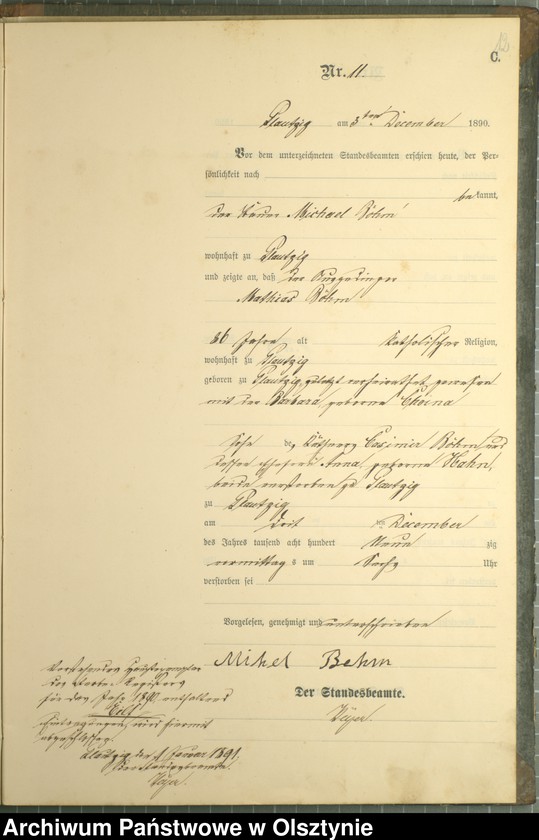 C.
Nr. 11
Plautzig am 3ten December 1890.
Vor dem unterzeichneten Standesbeamten erschien heute, der Per-
sönlichkeit nach
bekannt,
der Michael Böhm
wohnhaft zu Plautzig
und zeigte an, daß der
Mathias Böhm
86 Jahre alt katholischer Religion,
wohnhaft zu Plautzig
geboren zu Plautzig, zuletzt verheirathet gewesen
mit der Barbara, geborne
Sohn des Casimir Böhm und
dessen Ehefrau Anna, geborne Hahn,
beide verstorben zu Plautzig
zu Plautzig
am December
des Jahres tausend acht hundert Neunzig
vormittags um Sechs Uhr
verstorben sei
Vorgelesen, genehmigt und unterschrieben
Mihel Behm
Der Standesbeamte.
Vorstehendes
des Sterbe-Registers
für das Jahr 1890 enthaltend
Elf
Eintragungen, wird hiermit
abgeschlossen.
Plautzig den 1 Januar 1891.
Der Standesbeamte.
Archiwum Państwowe w Olsztynie